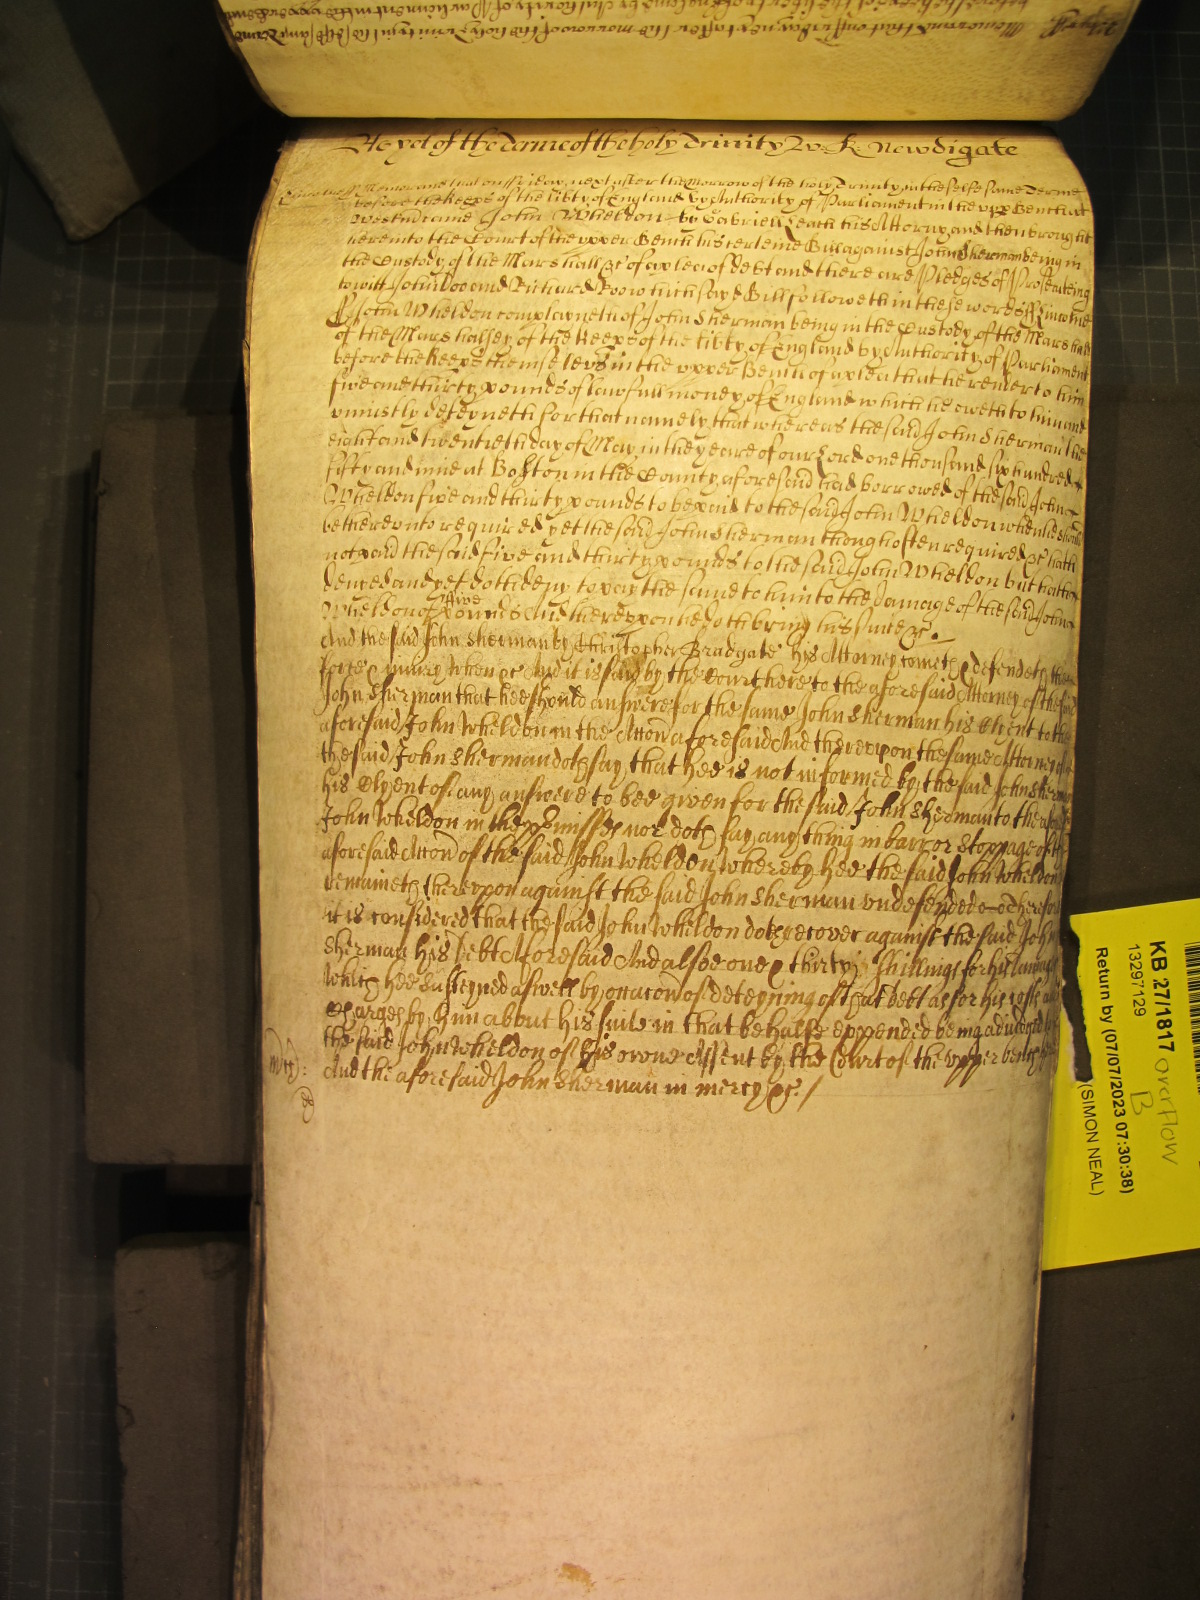 As yet of the Terme of the holy Trinity Wittnes R: Newdigate
Lincolne ss Memorand that on ffriday next after the Morrow of the holy Trinity in the selfe same Terme
before the Keeps of the libty of England by Authority of Parliament in the vpp Bench at
Westm came John Wheldon by Gabriell Leach his Attorny and then brought
here into the Court of the vpper Bench his certeine Bill against John Sherman being in
the Custody of the Marshall &c of a plea of debt and there are Pledges of Prosecuteing
to witt John Doo and Richard Roo which sayd Bill followeth in these words ss Lincolne
ss John Wheldon complayneth of John Sherman being in the Custody of the Marshall
of the Marshalsey of the Keeps of the libty of England by Authority of Parliament
before the Keeps themselevs in the vpper Bench of a plea that he render to him
five and thirty pounds of lawfull money of England which he oweth to him and
vniustly deteyneth for that namely that whereas the said John Sherman the
eight and twentieth day of May in the yeare of our Lord one thousand six hundred
fifty and nine at Boston in the County aforesaid had borrowed of the said John
Wheldon five and thirty pounds to be paid to the said John Wheldon when he should
be therevnto required yet the said John Sherman though often required &c hath
not paid the said five and thirty pounds to the said John Wheldon but hath
denyed and yet doth deny to pay the same to him to the damage of the said John
Wheldon of five pounds And therevpon he doth bring his suite &c.
And the said John Sherman by Christopher Bradgate his Attorney cometh & defendeth the
force & iniury when &c And it is said by the Court here to the aforesaid Attorney of the said
John Sherman that hee should answere for the same John Sherman his Clyent to the
aforesaid John Wheldon in the Accon aforesaid And therevpon the same Attorney of
the said John Sherman doth say that hee is not informed by the said John Sherman
his Clyent of any answere to bee given for the said John Sherman to the
John Wheldon in the pmisses nor doth say any thing in barr or stoppage of the
aforesaid Accon of the said John Wheldon Whereby hee the said John Wheldon
remaineth therevpon against the said John Sherman vndefended Therefore
it is considered that the said John Wheldon doth recover against the said John
Sherman his Debt Aforesaid And alsoe one & thirty Shillings for his damages
which hee susteyned aswell by occacon of deteyning of that debt as for his costs and
Charges by him about his suite in that behalfe expended being adiudged
the said John Wheldon of his owne Assent by the Court of the vpper bench
mercy: And the aforesaid John Sherman in mercy &c. /
KB 27/1817 overflow
13297129 B
Return by (07/07/2023 07:30:38)
(SIMON NEAL)